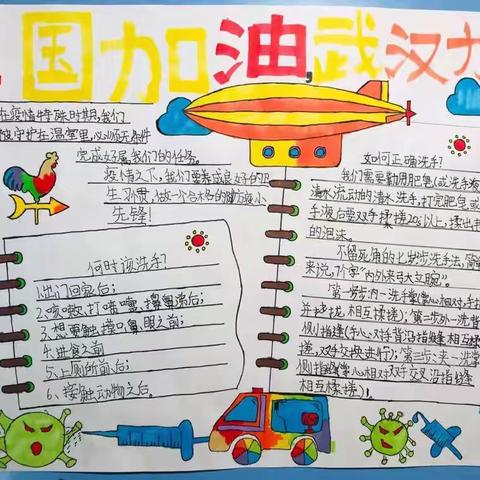 国加油,武汉加
在疫情特殊时期,我们
守护在温室里,必顺无条件
完成好属我们的任务。
疫情之下,我们要养成良好的卫
生习惯,做一个合格的防疫小
先锋!
何时该洗手?
1.出门回家后;
2.咳嗽、打喷嚏、擤鼻涕后;
3.想要触摸口、鼻、眼之前;
4.进食之前
5.上厕所前后;
6、接触动物之后。
如何正确洗手?
我们需要勤用肥皂(或洗手液
清水流动的清水洗手,打完肥皂或
手液后要双手揉搓20s以上,揉出丰
的泡沫。
不留死角的七步洗手法,简单
来说,7个字“内外夹弓大立腕”。
第一步:内—洗手掌(掌心相对,手指
并拢,相互揉搓);第二步:外—洗背
侧指缝(手心对手背沿指缝相互揉
搓,双手交换进行);第三步:夹—洗掌
侧指缝(掌心相对双手交叉沿指缝
相互揉搓)。